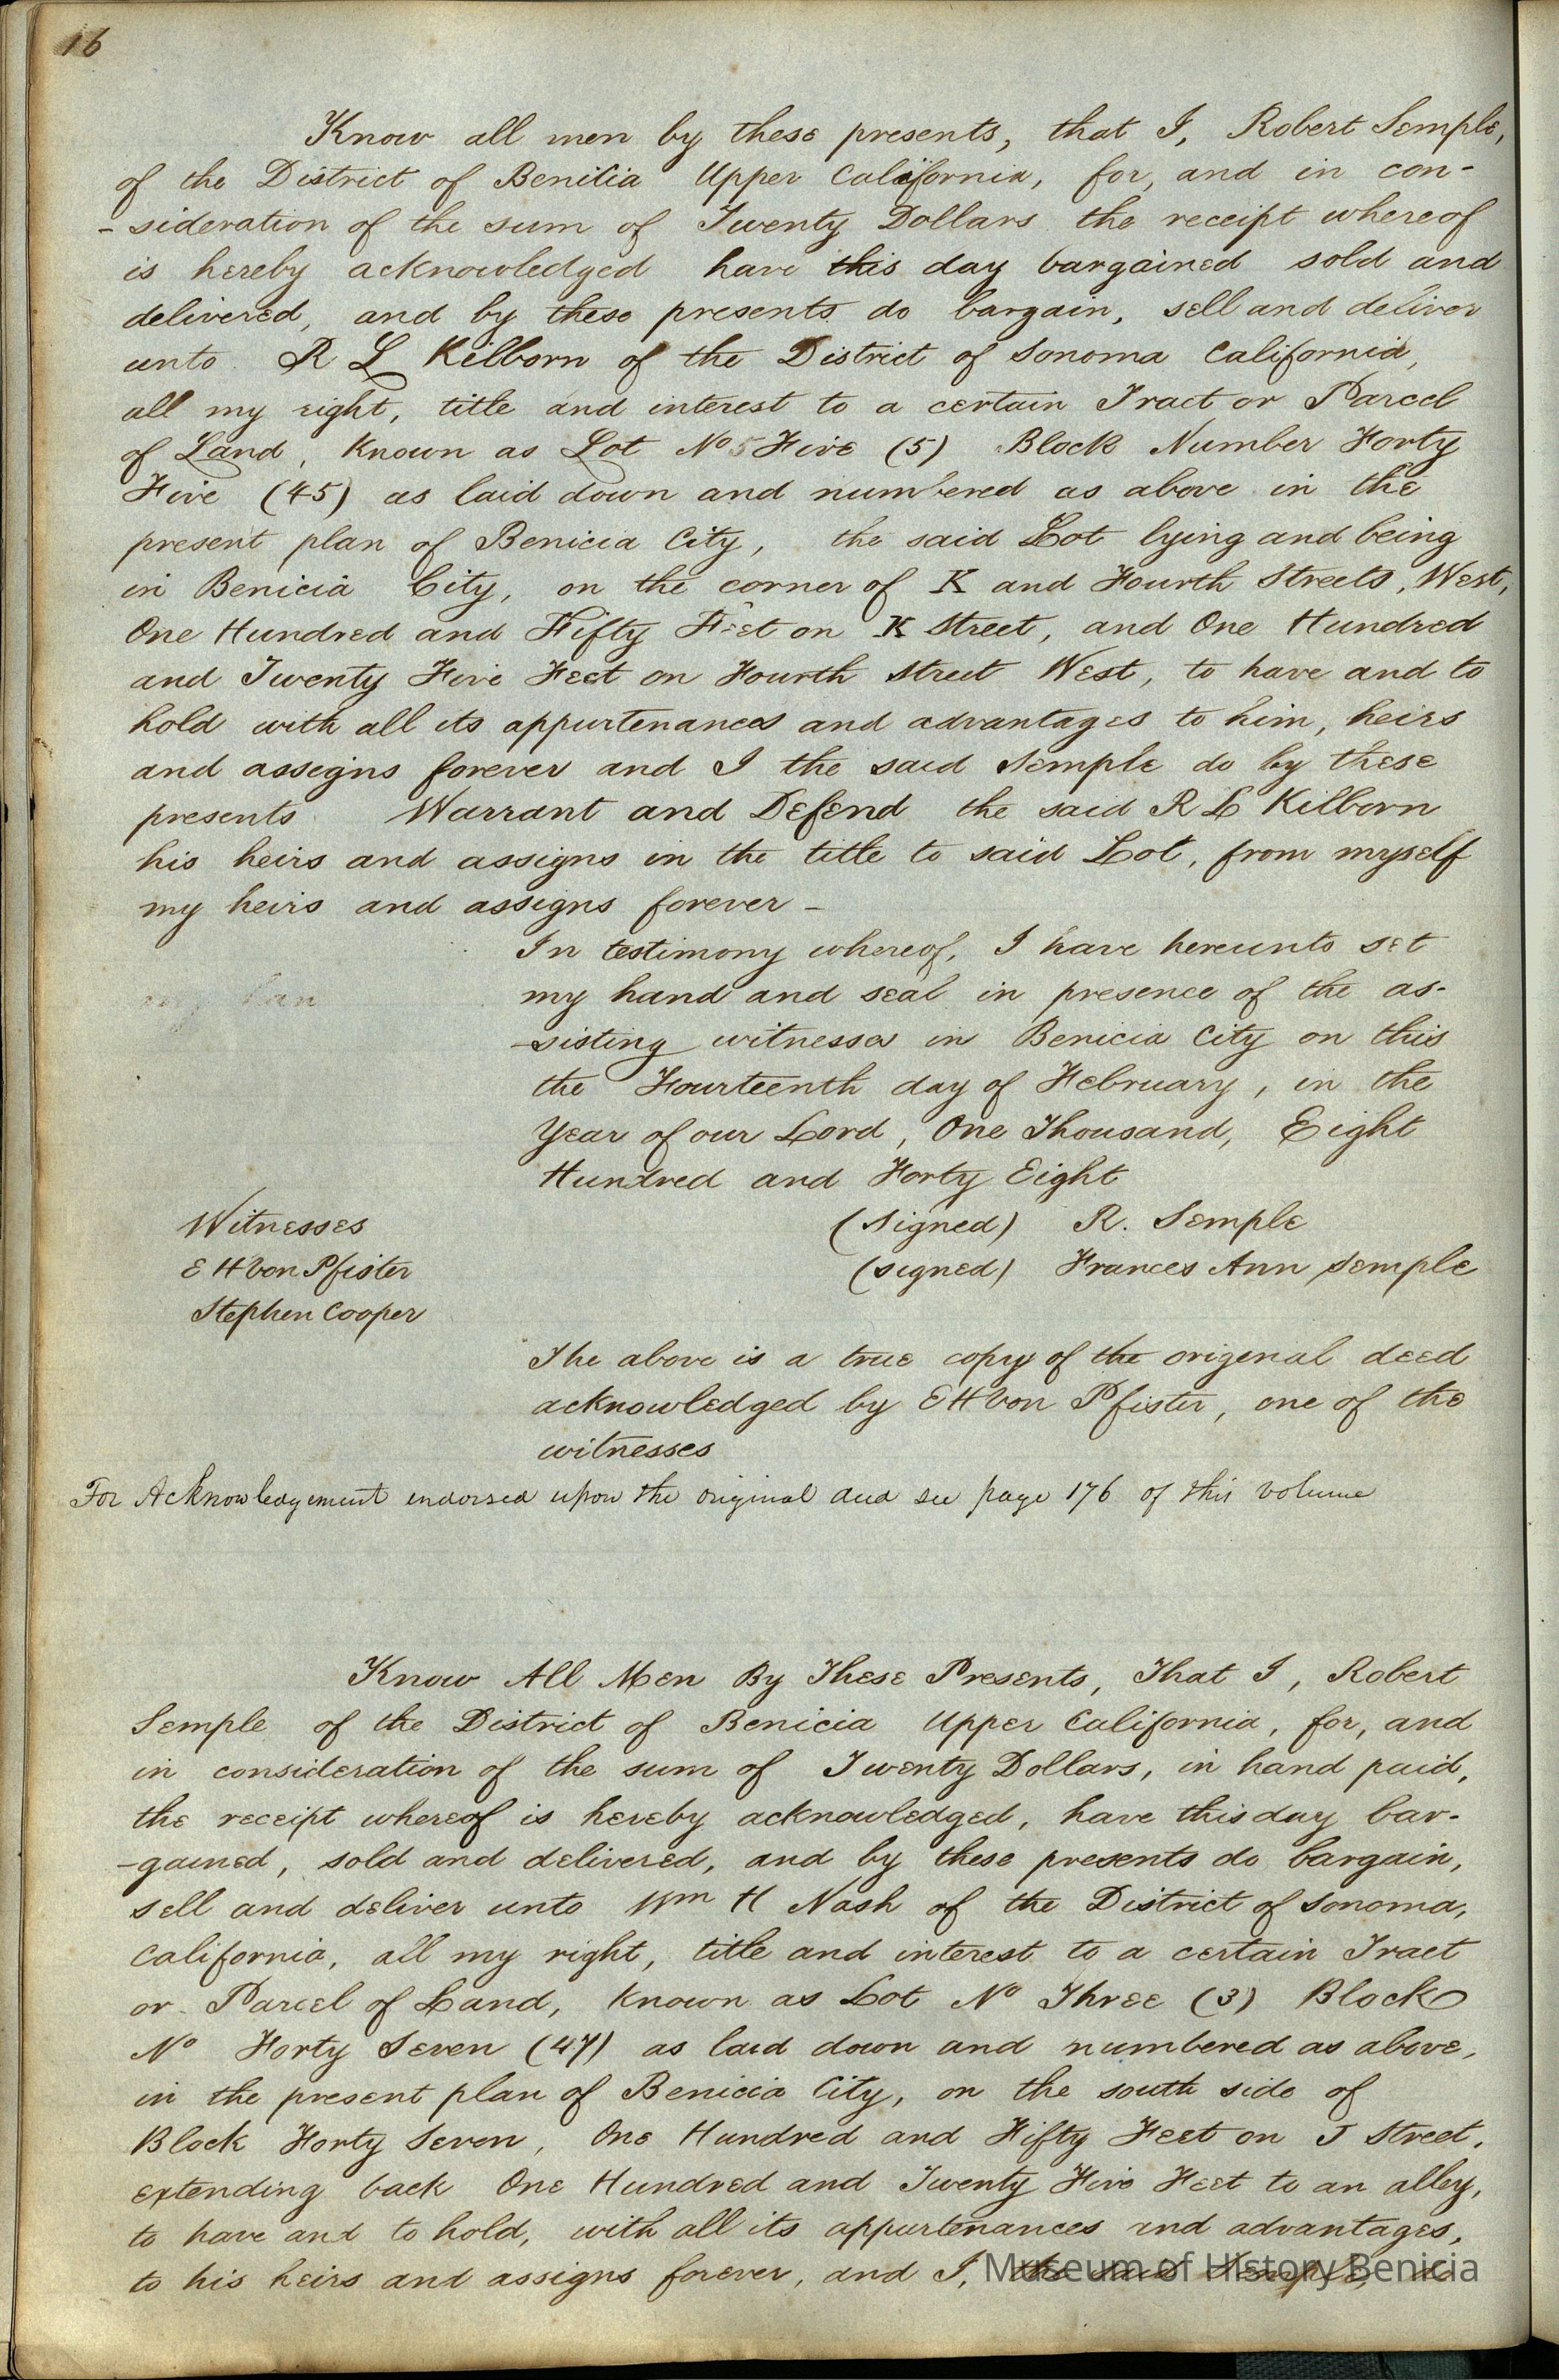 16
Know all men by these presents, that I, Robert Semple,
of the District of Benicia Upper California, for, and in con-
-sideration of the sum of Twenty Dollars the receipt whereof
is hereby acknowledged have this day bargained sold and
delivered, and by these presents do bargain, sell and deliver
unto R L Kilborn of the District of Sonoma California,
all my right, title and interest to a certain Tract or Parcel
of Land, Known as Lot No 5 Five (5) Block Number Forty
Five (45) as laid down and numbered as above in the
present plan of Benicia City, the said Lot lying and being
in Benicia City, on the corner of K and Fourth Streets, West,
One Hundred and Fifty Feet on K Street, and One Hundred
and Twenty Five Feet on Fourth Street West, to have and to
hold with all its appurtenances and advantages to him, heirs
and assegns forever and I the said Semple do by these
presents Warrant and Defend the said R L Kilborn
his heirs and assigns in the title to said Lot, from myself
my heirs and assigns forever -
In testimony whereof, I have hereunto set
my hand and seal in presence of the as-
-sisting witnesses in Benicia City on this
the Fourteenth day of February, in the
Year of our Lord, One Thousand, Eight
Hundred and Forty Eight
Witnesses (signed) R. Semple
E H Von Pfister (signed) Frances Ann Semple
Stephen Cooper
The above is a true copy of the origenal deed
acknowledged by E H Von Pfister, one of the
witnesses
For Acknowledgement endorsed upon the original deed see page 176 of this volume
Know All Men By These Presents, That I, Robert
Semple of the District of Benicia Upper California, for, and
in consideration of the sum of Twenty Dollars, in hand paid,
the receipt whereof is hereby acknowledged, have this day bar-
-gained, sold and delivered, and by these presents do bargain,
sell and deliver unto Wm H Nash of the District of Sonoma,
California, all my right, title and interest to a certain Tract
or Parcel of Land, Known as Lot No Three (3) Block
No Forty Seven (47) as laid down and numbered as above,
in the present plan of Benicia City, on the south side of
Block Forty Seven, One Hundred and Fifty Feet on J Street,
extending back One Hundred and Twenty Five Feet to an alley,
to have and to hold, with all its appurtenances and advantages,
to his heirs and assigns forever, and I, the said Semple,
Museum of History Benicia